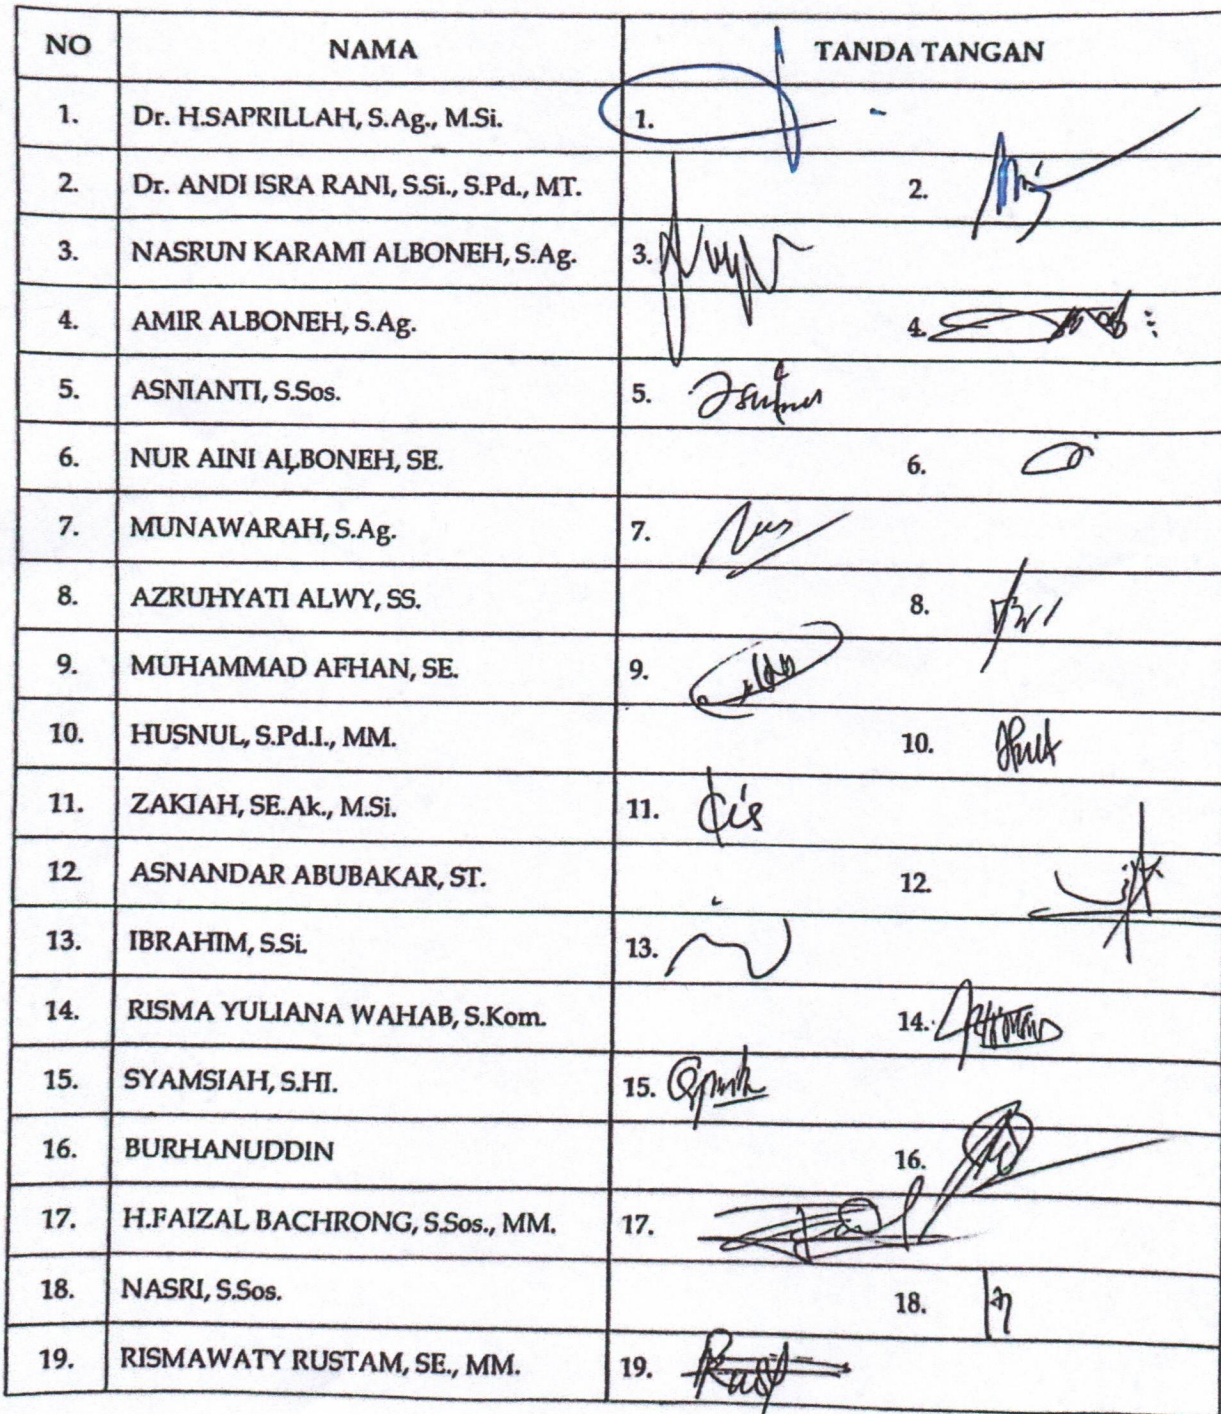 NO NAMA TANDA TANGAN
1. Dr. H.SAPRILLAH, S.Ag., M.Si. 1.
2. Dr. ANDI ISRA RANI, S.Si., S.Pd., MT. 2.
3. NASRUN KARAMI ALBONEH, S.Ag. 3.
4. AMIR ALBONEH, S.Ag. 4.
5. ASNIANTI, S.Sos. 5.
6. NUR AINI ALBONEH, SE. 6.
7. MUNAWARAH, S.Ag. 7.
8. AZRUHYATI ALWY, SS. 8.
9. MUHAMMAD AFHAN, SE. 9.
10. HUSNUL, S.Pd.I., MM. 10.
11. ZAKIAH, SE.Ak., M.Si. 11.
12. ASNANDAR ABUBAKAR, ST. 12.
13. IBRAHIM, S.Si. 13.
14. RISMA YULIANA WAHAB, S.Kom. 14.
15. SYAMSIAH, S.HI. 15.
16. BURHANUDDIN 16.
17. H.FAIZAL BACHRONG, S.Sos., MM. 17.
18. NASRI, S.Sos. 18.
19. RISMAWATY RUSTAM, SE., MM. 19.